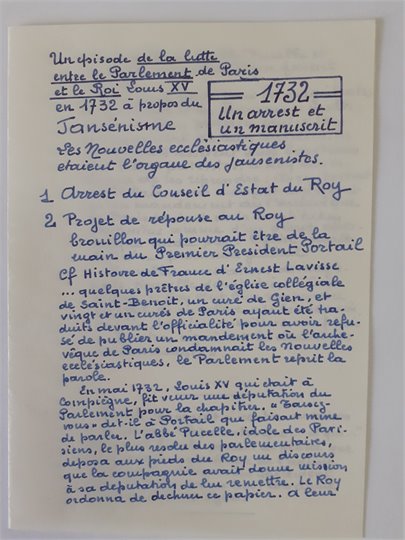 Un episode de la lutte
entre le Parlement de Paris
et le Roi Louis XV
en 1732 à propos du
Jansénisme
1732
Un arrest et
un manuscrit
Les Nouvelles ecclésiastiques
etaient l'organe des jansenistes.
1 Arrest du Conseil d'Estat du Roy
2 Projet de réponse au Roy
brouillon qui pourrait être de la
main du Premier President Portail
Cf Histoire de France d'Ernest Lavisse
... quelques prêtres de l'église collégiale
de Saint-Benoit, un curé de Gien, et
vingt et un curés de Paris ayant été tra-
duits devant l'officialité pour avoir refu-
sé de publier un mandement où l'arche-
vêque de Paris condamnait les Nouvelles
ecclésiastiques, le Parlement reprit la
parole.
En mai 1732, Louis XV qui était à
Compiègne, fit venir une députation du
Parlement pour la chapitrer. "Taisez-
vous" dit-il à Portail qui faisait mine
de parler. L'abbé Pucelle, idole des Pari-
siens, le plus résolu des parlementaires,
deposa aux pieds du Roy un discours
que la compagnie avait donné mission
à sa deputation de lui remettre. Le Roy
ordonna de dechirer ce papier. a leur